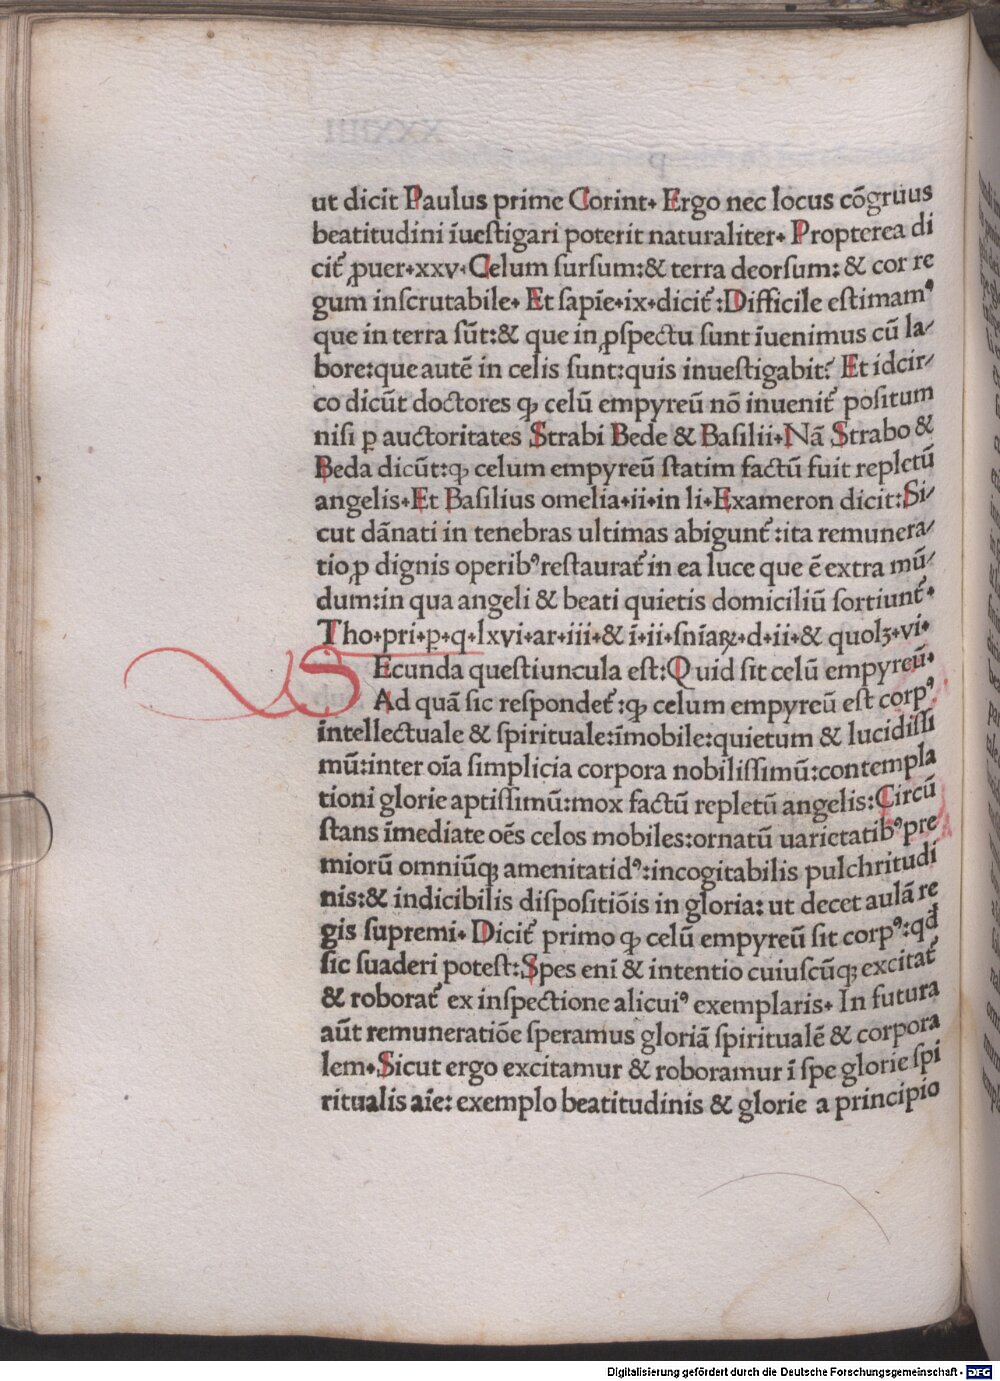 ut dicit Paulus prime Corint. Ergo nec locus cōgruus
beatitudini īuestigari poterit naturaliter. Propterea di
cit̄ ꝓuer.xxv. Celum sursum:& terra deorsum: & cor re
gum inscrutabile. Et sapīe.ix.dicit̄ :Difficile estimamꝰ
que in terra sūt:& que in ꝓspectu sunt īuenimus cū la⸗
bore:que autē in celis sunt:quis inuestigabit? Et idcir⸗
co dicūt doctores ꝙ celū empyreū nō inuenit̄ positum
nisi ꝑ auctoritates Strabi Bede & Basilii.Nā Strabo &
Beda dicūt:ꝙ celum empyreū statim factū fuit repletū
angelis.Et Basilius omelia.ii.in li.Exameron dicit:Si⸗
cut dānati in tenebras ultimas abigunt̄ :ita remunera⸗
tio ꝓ dignis operibꝰ restaurat̄ in ea luce que ē extra mū⸗
dum:in qua angeli & beati quietis domiciliū sortiunt̄.
Tho.pri.ꝑ.q.lxvi.ar.iii.& ī.ii.snīaꝝ.d.ii.& quolꝫ.vi.
SEcunda questiuncula est:Quid sit celū empyreū.
Ad quā sic respondet̄ :ꝙ celum empyreū est corpꝰ
intellectuale & spirituale:īmobile:quietum & lucidissi
mū:inter oīa simplicia corpora nobilissimū:contempla
tioni glorie aptissimū:mox factū repletū angelis:Circū
stans īmediate oēs celos mobiles:ornatū uarietatibꝰ pre
miorū omniūꝙ amenitatidꝰ:incogitabilis pulchritudi
nis:& indicibilis dispositiōis in gloria: ut decet aulā re
gis supremi. Dicit̄ primo ꝙ celū empyreū sit corpꝰ:qd̄
sic suaderi potest:Spes enī & intentio cuiuscūꝙ excitat̄
& roborat̄ ex inspectione alicuiꝰ exemplaris. In futura
aūt remuneratiōe speramus gloriā spiritualē & corpora
lem.Sicut ergo excitamur & roboramur ī spe glorie spi
ritualis aīe: exemplo beatitudinis & glorie a principio
Digitalisierung gefördert durch die Deutsche Forschungsgemeinschaft - DFG